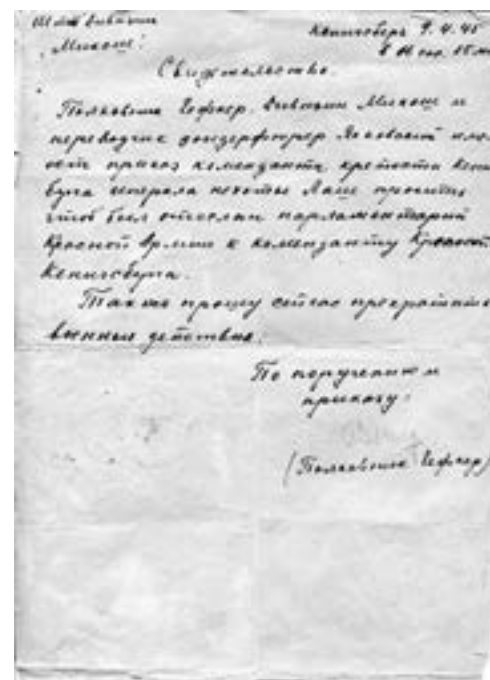 Штаб дивизии Кенигсберг 9.4.45
"Микош"
Свидетельство.
Полковник Гефкер, дивизии Микош и
переводчик зондерфюрер Яковский име-
ет приказ коменданта крепости Кениг
бурга генерала пехоты Ляше просить
чтоб был отослан парламентарий
Красной Армии к коменданту Крепост
Кенигсбурга.
Также прошу сейчас прекратить
военные действия.
По поручению и
приказу:
(Полковник Гефкер)